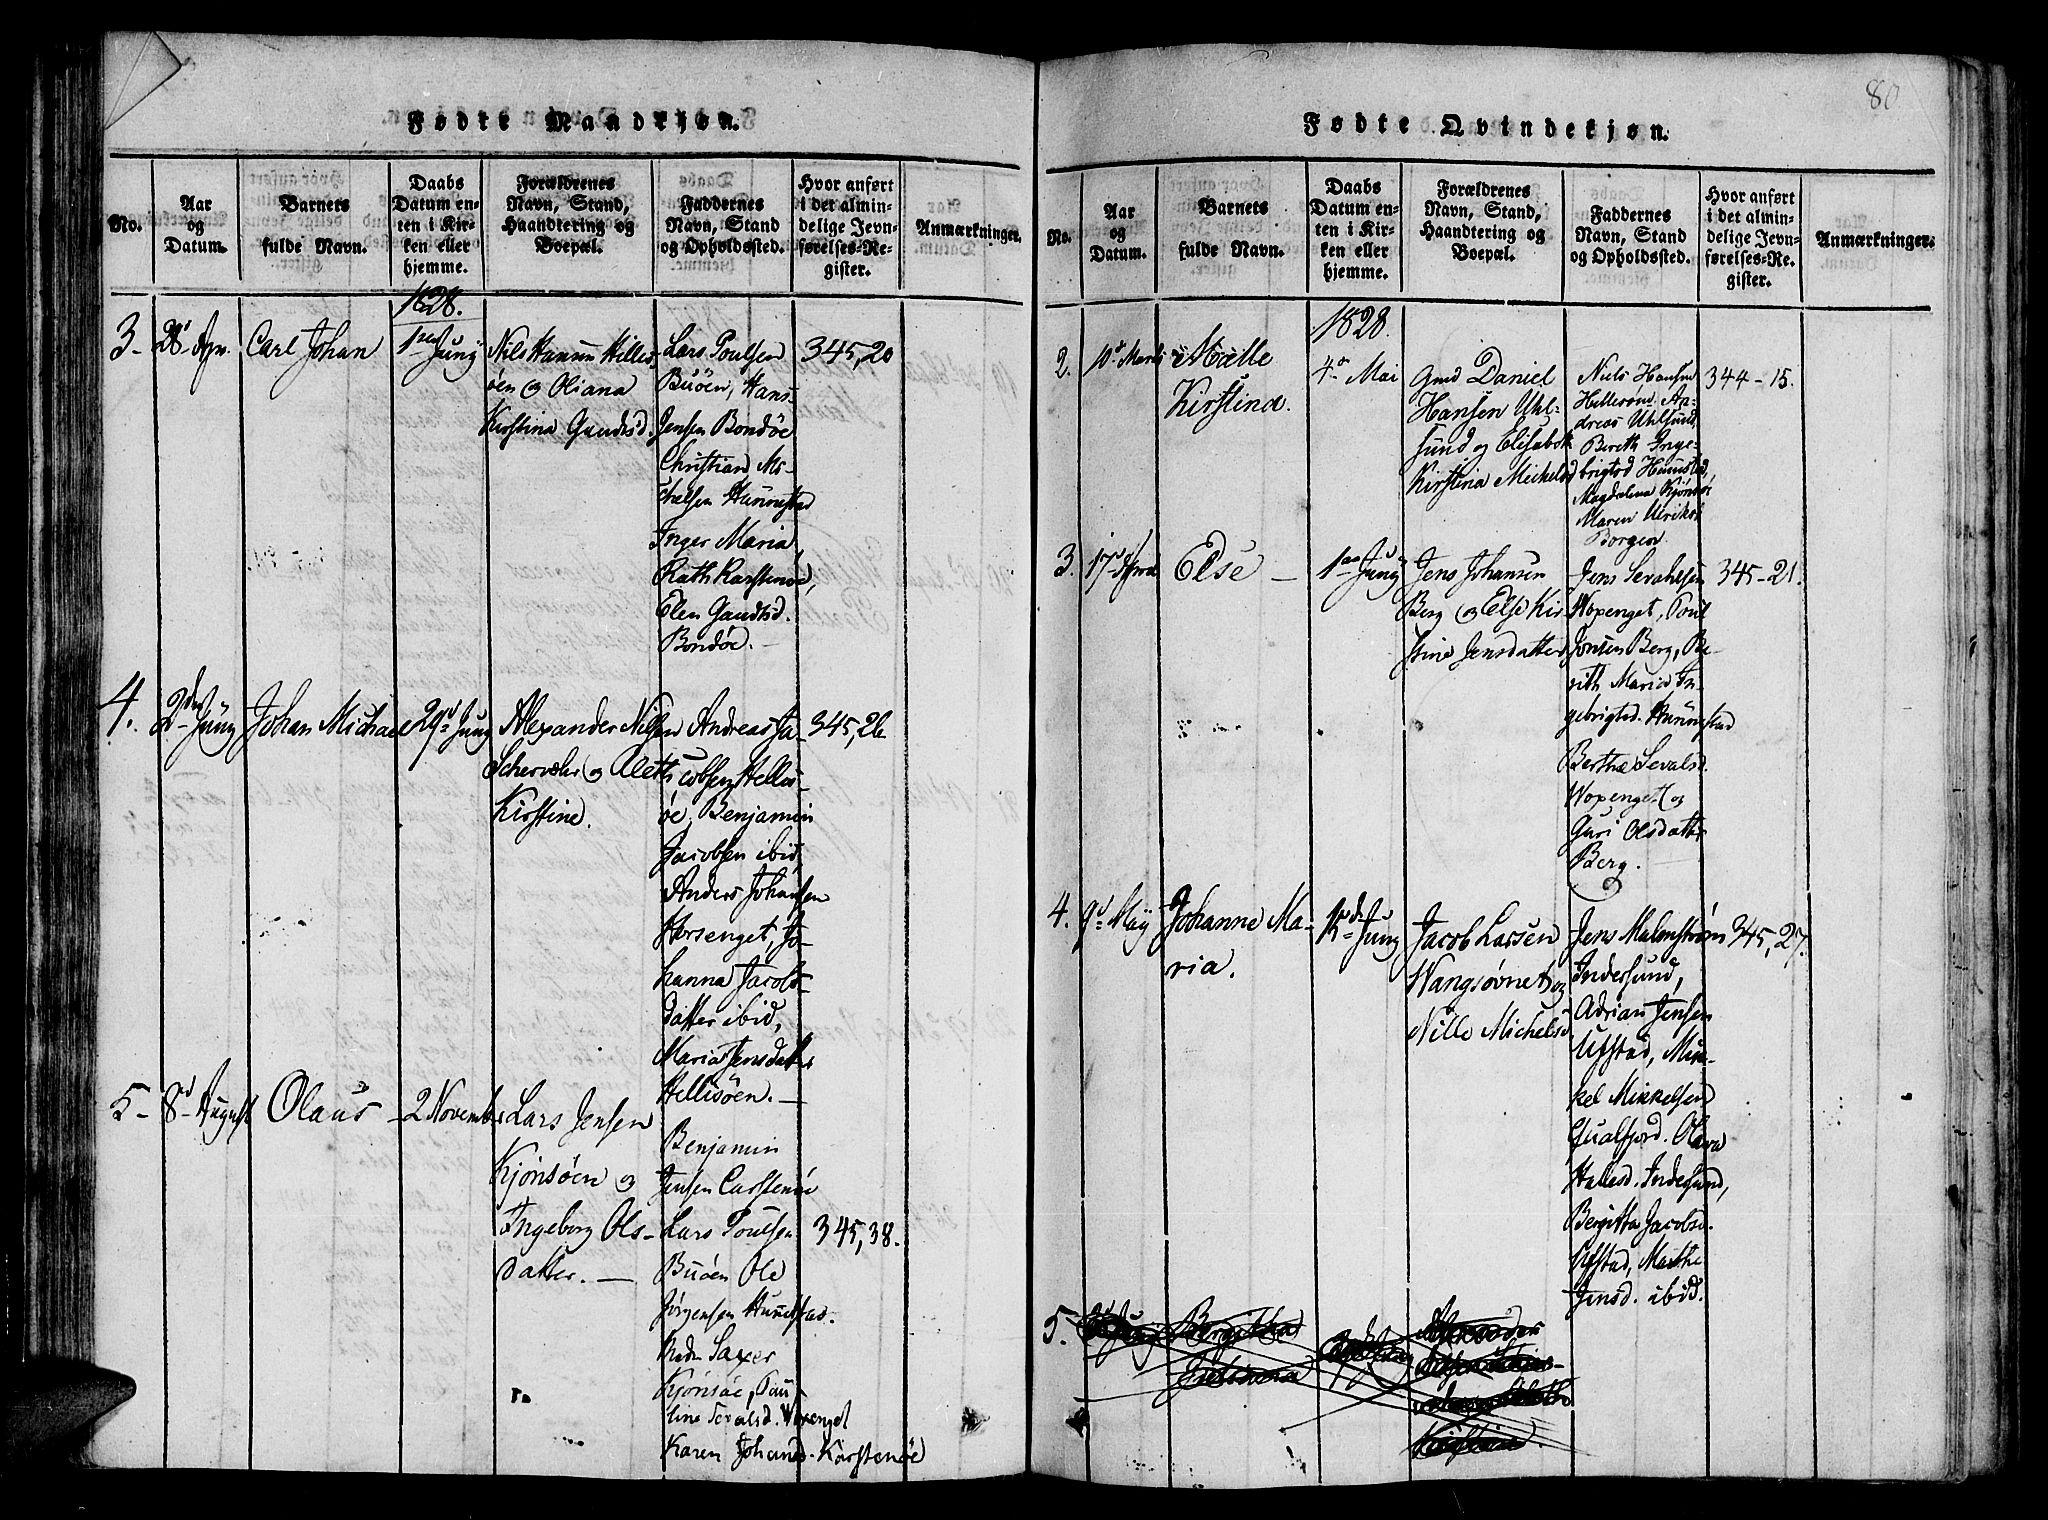 80
Fødte Mandkjøn.
No.
Aar
og
Datum.
Barnets
fulde Navn.
Daabs
Datum en-
ten i Kir-
ken eller
hjemme.
Forældrenes
Navn, Stand,
Haandtering og
Boepæl.
Faddernes
Navn, Stand
og Opholdssted.
Hvor anført
i det almin-
delige Jevn-
førelses-Re-
gister.
Anmærkninger.
1828.
3-
28' Apr.
Carl Johan
Juny
Oliana
Kirstina Gundtsd.
Lars Poulsen
Buöen, Hans
Jensen Bondöe
Christian Mi-
chelsen Hunnestad
Inger Maria
Elen Gundtsd.
Bondöe.
345,20
4.
Juny
Johan Michael
29' Juny
Alexander Nilsen
og Aleth
Kirstine.
Andreas Ja-
cobsen Hellis-
öe, Benjamin
Jacobsen ibid,
Anders Johansen
Horsenget, Jo-
hanna Jacobs-
datter ibid,
Maria Jensdatter
Hellisöen.
345,26
5-
8' August
Olaus
2 Novemb.
Lars Jensen
Kjönsöen og
Ingeborg Ols-
datter.
Benjamin
Jensen Carstenöe
Lars Poulsen
Buöen Ole
Jörgensen Hunestad.
Kjönsöe, Pau-
line Sevalsd. Woxenget
Karen Johansd. Karstenöe
345,38.
Fødte Qvindekjøn.
No.
Aar
og
Datum.
Barnets
fulde Navn.
Daabs
Datum en-
ten i Kir-
ken eller
hjemme.
Forældrenes
Navn, Stand,
Haandtering og
Boepæl.
Faddernes
Navn, Stand
og Opholdssted.
Hvor anført
i det almin-
delige Jevn-
førelses-Re-
gister.
Anmærkninger.
1828.
2.
10' Marti
Kirstina.
4' Mai
Daniel
Hansen Uhl-
sund og Elisabeth
Kirstina Michelsd
Niels Hansen
An-
dreas Uhlsund
Bereth Inge-
brigtsd Hunnestad,
Magdalena Kjönsöe
Maren Ulriksd
Borgen.
344-15.
3.
17' April
Else
Juny
Jens Johansen
Berg og Else Kir-
stine Jensdatter
Jens Sevalsen
Woxenget, Poul
Jonsen Berg, Be-
rith Maria In-
gebrigtsd. Hunnestad
Berthe Sevalsd.
Woxenget og
Guri Olsdatter
Berg.
345-21.
4.
9' May
Johanne Ma-
ria.
15' Juny
Jacob Larsen
Wangsövnet og
Nille Michelsd
Jens Malmström
Indersund,
Adrian Jensen
Ufstad, Mik-
kel Mikkelsen
Qualfjord. Olava
Hallesd. Indersund,
Bergitta Jacobsd.
Ufstad, Marthe
Jensd. ibid.
345,27.
5.